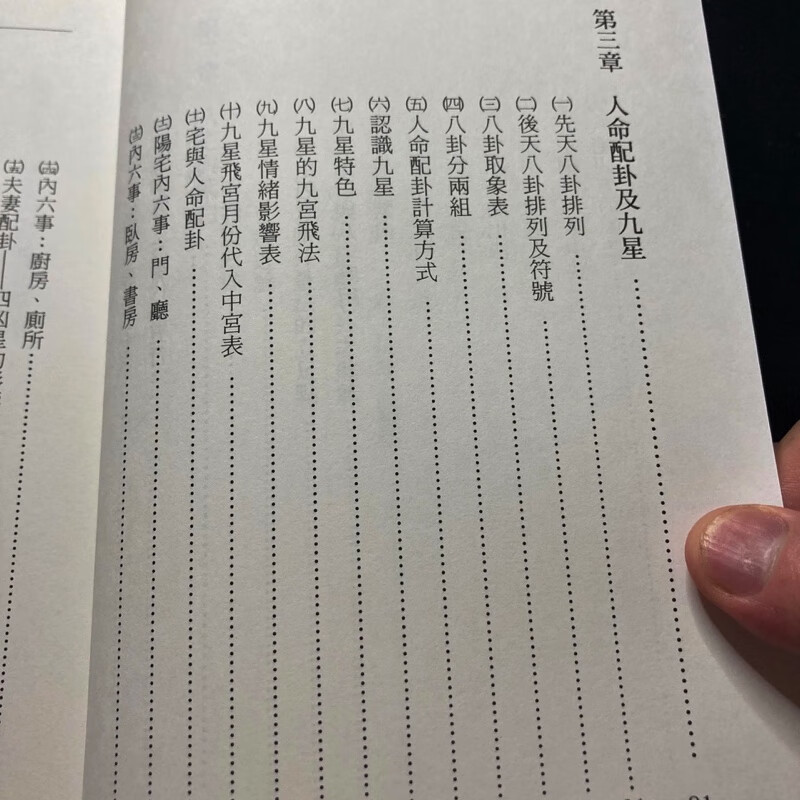 第三章　人命配卦及九星……………………
㈠先天八卦排列……………………
㈡後天八卦排列及符號……………………
㈢八卦取象表……………………
㈣八卦分兩組……………………
㈤人命配卦計算方式……………………
㈥認識九星……………………
㈦九星特色……………………
㈧九星的九宮飛法……………………
㈨九星情緒影響表……………………
㈩九星飛宮月份代入中宮表……………………
(十一)宅與人命配卦……………………
(十二)陽宅內六事：門、廳……………………
(十三)內六事：臥房、書房……………………
(十四)內六事：廚房、廁所……………………
(十五)夫妻配卦——四凶星的